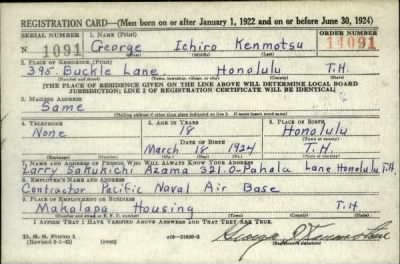 REGISTRATION CARD—(Men born on or after January 1, 1922 and on or before June 30, 1924)
SERIAL NUMBER 1. NAME (Print) ORDER NUMBER
N 1091 George Ichiro Kenmotsu 14091
(First) (Middle) (Last)
2. PLACE OF RESIDENCE (Print)
395 Buckle Lane. Honolulu T.H.
(Number and street) (Town, township, village, or city) (County) (State)
[THE PLACE OF RESIDENCE GIVEN ON THE LINE ABOVE WILL DETERMINE LOCAL BOARD
JURISDICTION; LINE 2 OF REGISTRATION CERTIFICATE WILL BE IDENTICAL]
3. MAILING ADDRESS
Same
[Mailing address if other than place indicated on line 2. If same insert word same]
4. TELEPHONE 5. AGE IN YEARS 6. PLACE OF BIRTH
None 18 Honolulu
DATE OF BIRTH (Town or county)
March 18 1924 T.H.
(Exchange) (Number) (Mo.) (Day) (Yr.) (State or country)
7. NAME AND ADDRESS OF PERSON WHO WILL ALWAYS KNOW YOUR ADDRESS
Larry Sakukichi Azama 321.O-Pahala Lane Honolulu T.H.
8. EMPLOYER'S NAME AND ADDRESS
Contractor Pacific Naval Air Base
9. PLACE OF EMPLOYMENT OR BUSINESS
Makalapa Housing T.H
(Number and street or R. F. D. number) (Town) (County) (State)
I AFFIRM THAT I HAVE VERIFIED ABOVE ANSWERS AND THAT THEY ARE TRUE.
D. S. S. Form 1
(Revised 6-1-42) George I. Kenmotsu
(Registrant's signature)